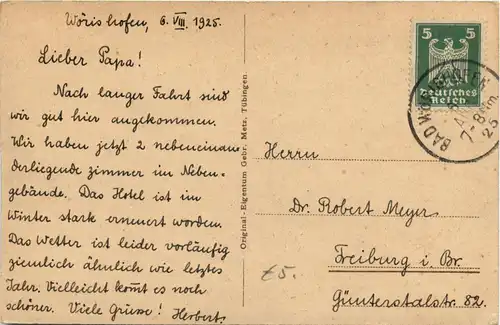 Wörishofen, 6. VIII. 1925.
Lieber Papa!
Nach langer Fahrt sind
wir gut hier angekommen.
Wir haben jetzt 2 nebeneinan-
derliegende Zimmer im Neben-
gebäude. Das Hotel ist im
Winter stark erneuert worden.
Das Wetter ist leider vorläufig
ziemlich ähnlich wie letztes
Jahr. Vielleicht kom̅t es noch
schöner. Viele Grüsse! Herbert.
Original-Eigentum Gebr. Metz, Tübingen.
5 5
Deutsches
Reich
BAD WÖRISHOFEN
7-8 Nm
25
Herrn
Dr. Robert Meyer
Freiburg i. Br.
Günterstalstr. 82.
£5.